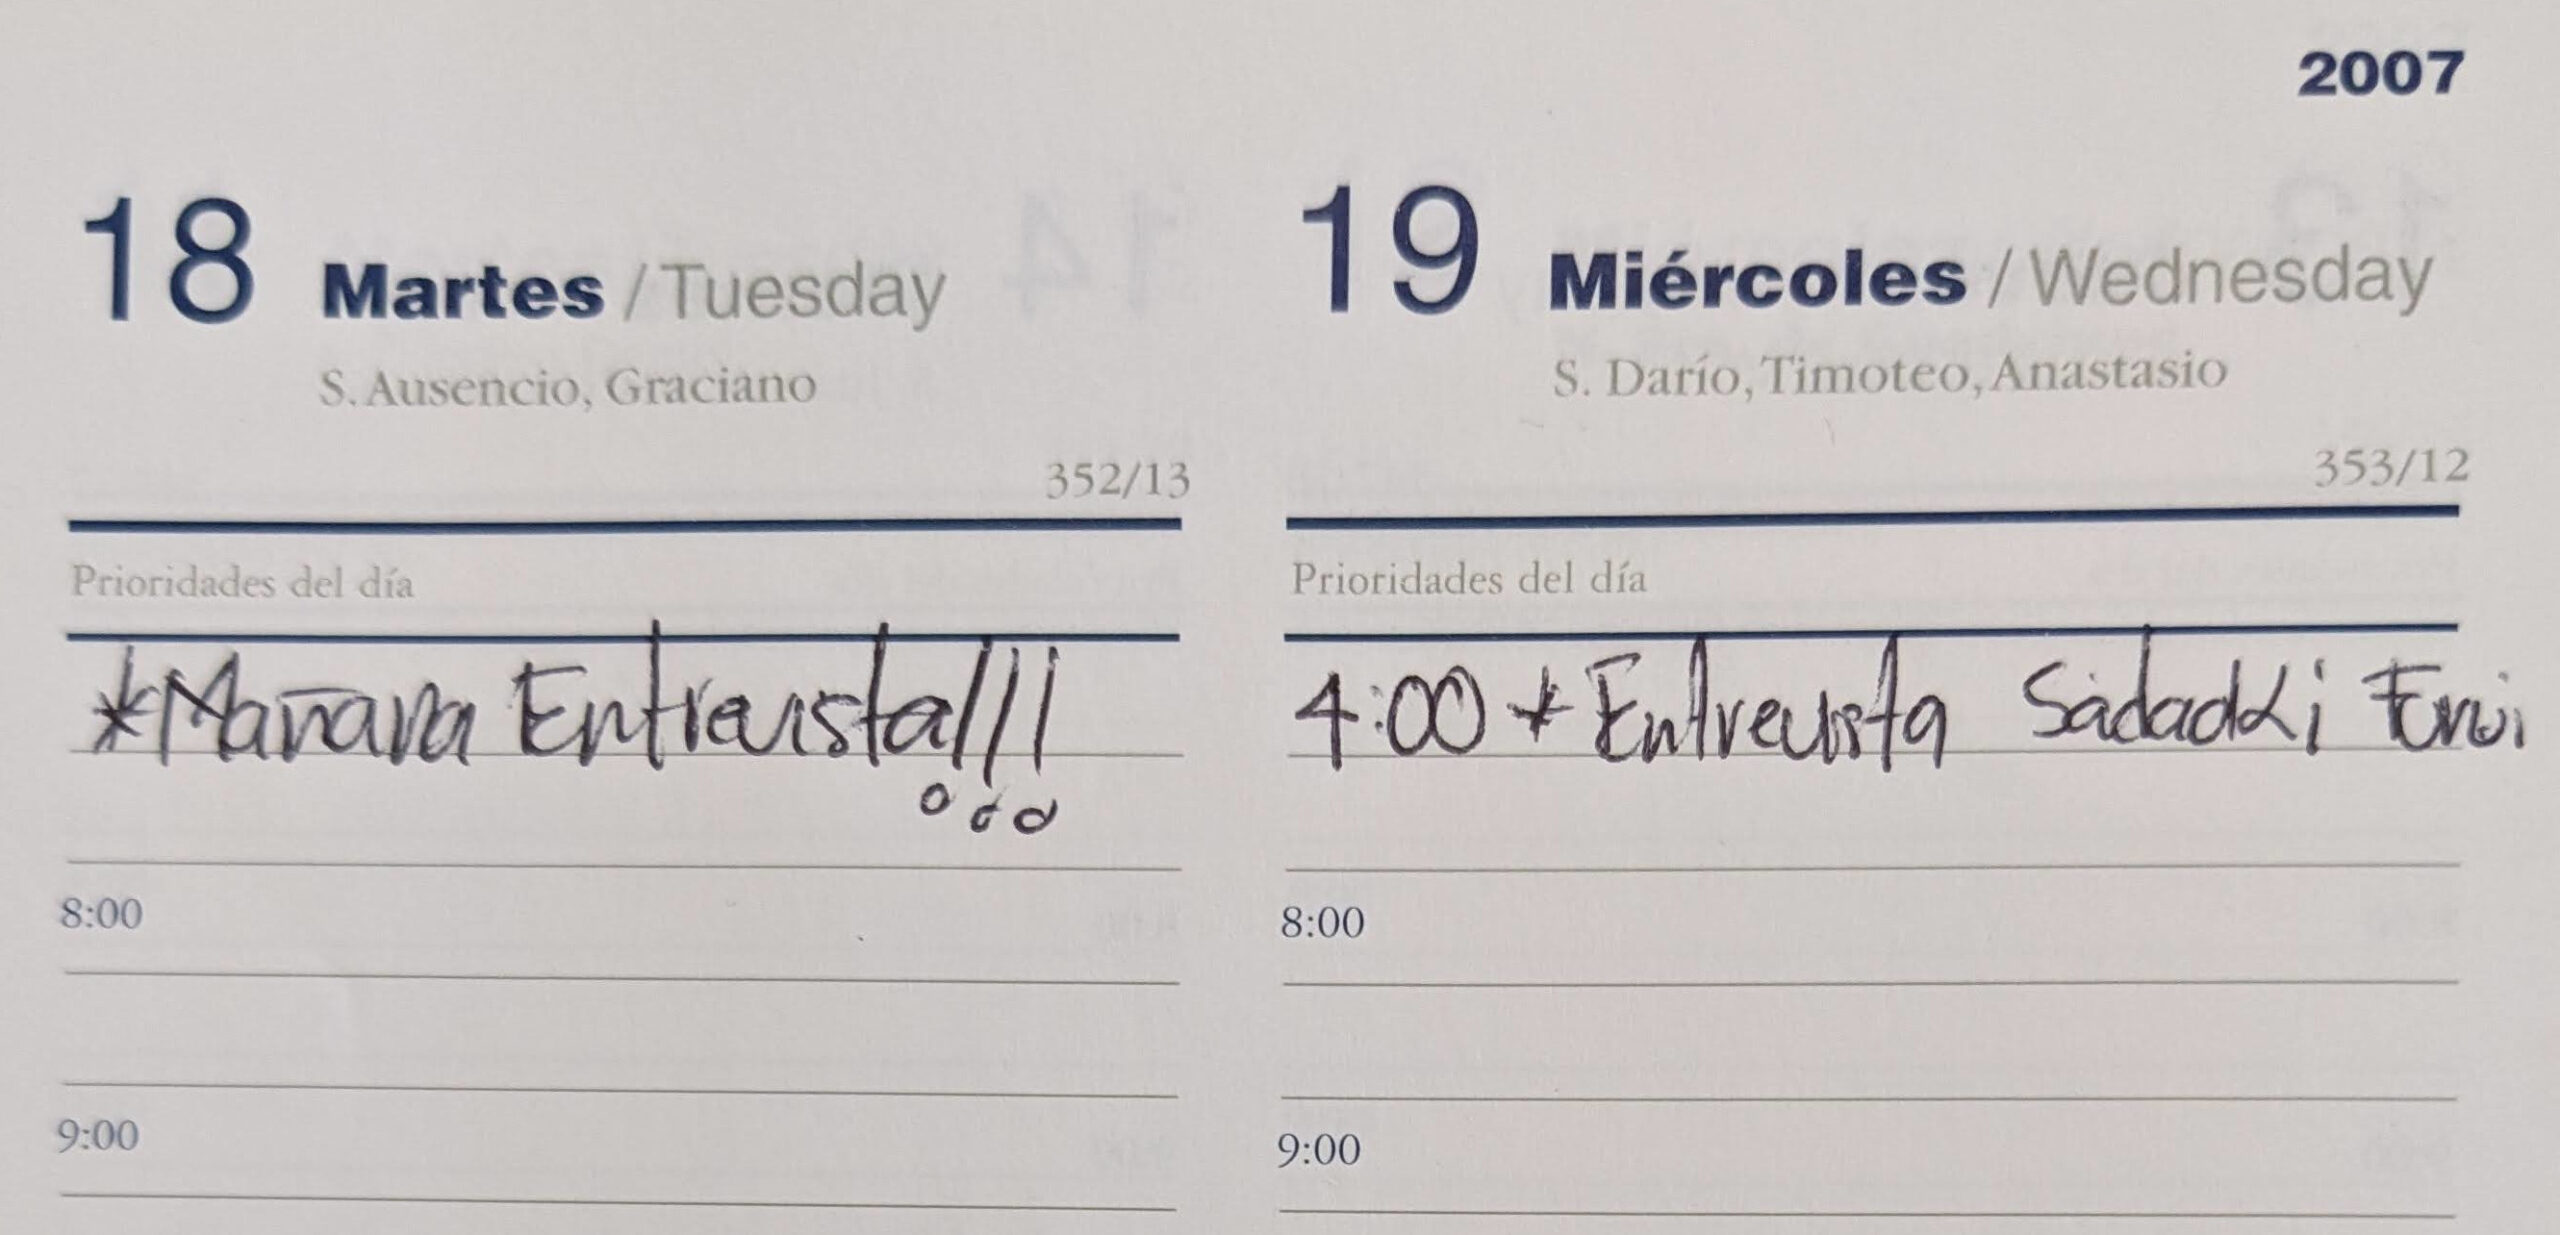 2007
18 Martes / Tuesday
S. Ausencio, Graciano
352/13
Prioridades del día
*Mañana Entrevista!!!
8:00
9:00
19 Miércoles / Wednesday
S. Darío, Timoteo, Anastasio
353/12
Prioridades del día
4:00 * Entrevista
8:00
9:00